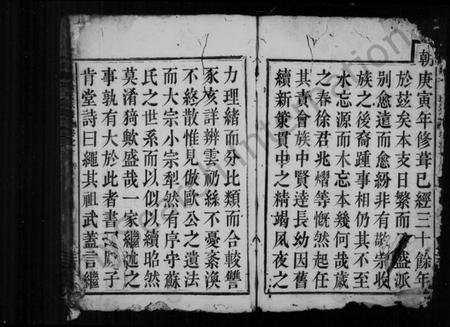 朝庚寅年修葺已經三十餘年
於玆矣本支日繁而 盛派
别愈遠而愈紛非有敬宗收
族之後裔踵事相仍其不至
水忘源而木忘本幾何哉歲
之春徐君兆熠等慨然起任
其責會族中賢達長幼因舊
續新葉貫中之精竭夙夜之
力理緒而分比類而合較讐
豕亥詳辨雲礽絲不憂紊渙
不終散惟見倣歐公之遺法
而大宗小宗犁然有序守蘇
氏之世系而以似以續昭然
莫淆猗歟盛哉一家繼述之
事孰有大於此者書 子
肯堂詩曰繩其祖武蓋言繼